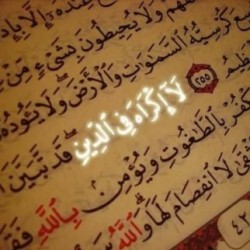 عِندَهُ إِلَّا بِإِذْ
هُمْ وَلَا يُحِيطُونَ بِشَيْءٍ مِّنْ
عَ كُرْسِيُّهُ السَّمَوَاتِ وَالْأَرْضَ وَلَا يَئُودُهُ
ظِيمُ ٢٥٥ لَا إِكْرَاهَ فِي الدِّينِ قَد تَّبَيَّنَ
كْفُرْ بِالطَّاغُوتِ وَيُؤْمِن بِاللَّهِ فَقَ
ثْقَى لَا انفِصَامَ لَهَا وَاللَّهُ سَ